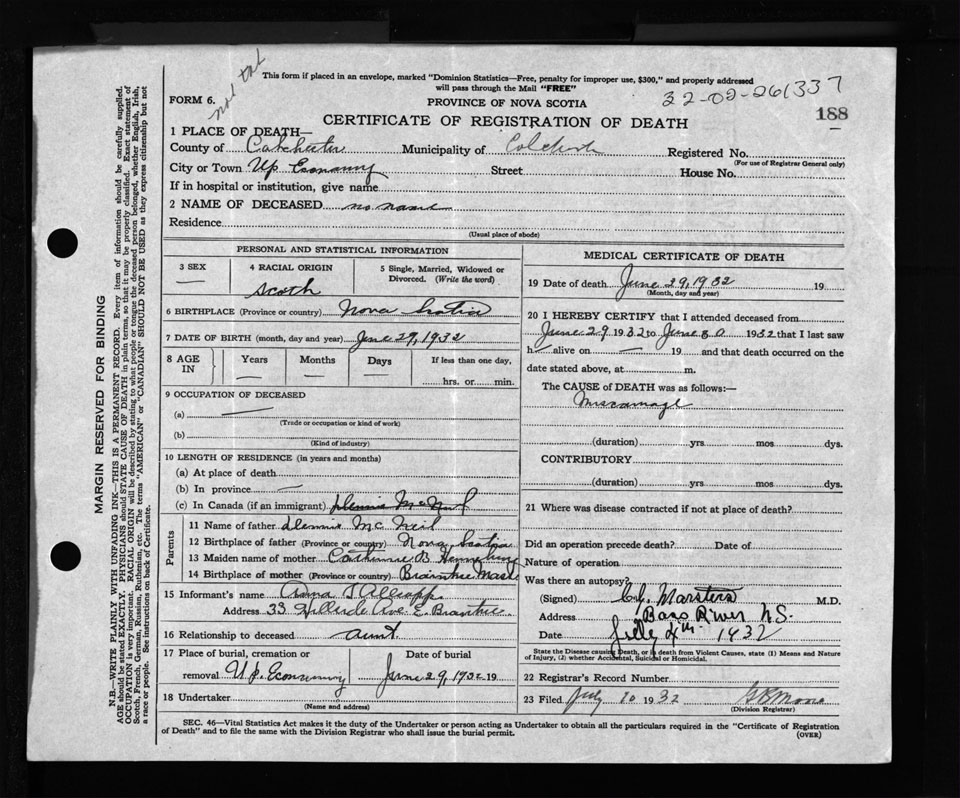 This form if placed in an envelope, marked "Dominion Statistics—Free, penalty for improper use, $300," and properly addressed
will pass through the Mail "FREE"
32-02-261337
FORM 6.
PROVINCE OF NOVA SCOTIA
188
CERTIFICATE OF REGISTRATION OF DEATH
1 PLACE OF DEATH—
County of Colchester Municipality of Colchester Registered No.
(For use of Registrar General only)
City or Town Up Economy Street House No.
If in hospital or institution, give name
2 NAME OF DECEASED no name
Residence
(Usual place of abode)
PERSONAL AND STATISTICAL INFORMATION
3 SEX — 4 RACIAL ORIGIN Scoth 5 Single, Married, Widowed or Divorced. (Write the word)
6 BIRTHPLACE (Province or country) Nova Scotia
7 DATE OF BIRTH (month, day and year) June 29, 1932
8 AGE IN Years — Months — Days — If less than one day, hrs. or min.
9 OCCUPATION OF DECEASED
(a) —
(Trade or occupation or kind of work)
(b)
(Kind of industry)
10 LENGTH OF RESIDENCE (in years and months)
(a) At place of death
(b) In province —
(c) In Canada (if an immigrant) Dennis McNeil
Parents
11 Name of father Dennis Mc Neil
12 Birthplace of father (Province or country) Nova Scotia
13 Maiden name of mother Catherine B
14 Birthplace of mother (Province or country) Braintree Mass
15 Informant's name Anna
Address 33 Ave E. Braintree
16 Relationship to deceased aunt
17 Place of burial, cremation or removal Up. Economy Date of burial June 29, 1932 19
18 Undertaker
(Name and address)
MEDICAL CERTIFICATE OF DEATH
19 Date of death June 29, 1932 19
(Month, day and year)
20 I HEREBY CERTIFY that I attended deceased from
June 29 1932 to June 30 1932 that I last saw
h— alive on — 19 and that death occurred on the
date stated above, at m.
The CAUSE of DEATH was as follows:—
Miscarriage
(duration) yrs mos dys.
CONTRIBUTORY
(duration) yrs mos dys.
21 Where was disease contracted if not at place of death?
Did an operation precede death? Date of
Nature of operation
Was there an autopsy?
(Signed) Marsters M.D.
Address Bass River N.S.
Date July 4th 1932
State the Disease causing Death, or in death from Violent Causes, state (1) Means and Nature of Injury, (2) whether Accidental, Suicidal or Homicidal.
22 Registrar's Record Number
23 Filed July 10 1932
(Division Registrar)
SEC. 46—Vital Statistics Act makes it the duty of the Undertaker or person acting as Undertaker to obtain all the particulars required in the "Certificate of Registration
of Death" and to file the same with the Division Registrar who shall issue the burial permit.
(OVER)
MARGIN RESERVED FOR BINDING
N.B.—WRITE PLAINLY WITH UNFADING INK—THIS IS A PERMANENT RECORD. Every item of information should be carefully supplied.
AGE should be stated EXACTLY. PHYSICIANS should STATE CAUSE OF DEATH in plain terms, so that it may be properly classified. Exact statement of
OCCUPATION is very important. RACIAL ORIGIN will be described by stating to what people or tongue the deceased person belonged, whether English, Irish,
Scotch, French, German, Russian, Ruthenian, etc. The terms "AMERICAN" or "CANADIAN" SHOULD NOT BE USED as they express citizenship but not
a race or people. See instructions on back of Certificate.